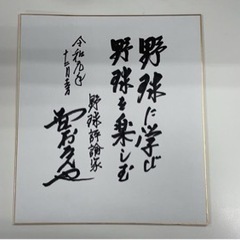 野球に学び
野球を楽しむ
野球評論家
令和元年
十二月吉日